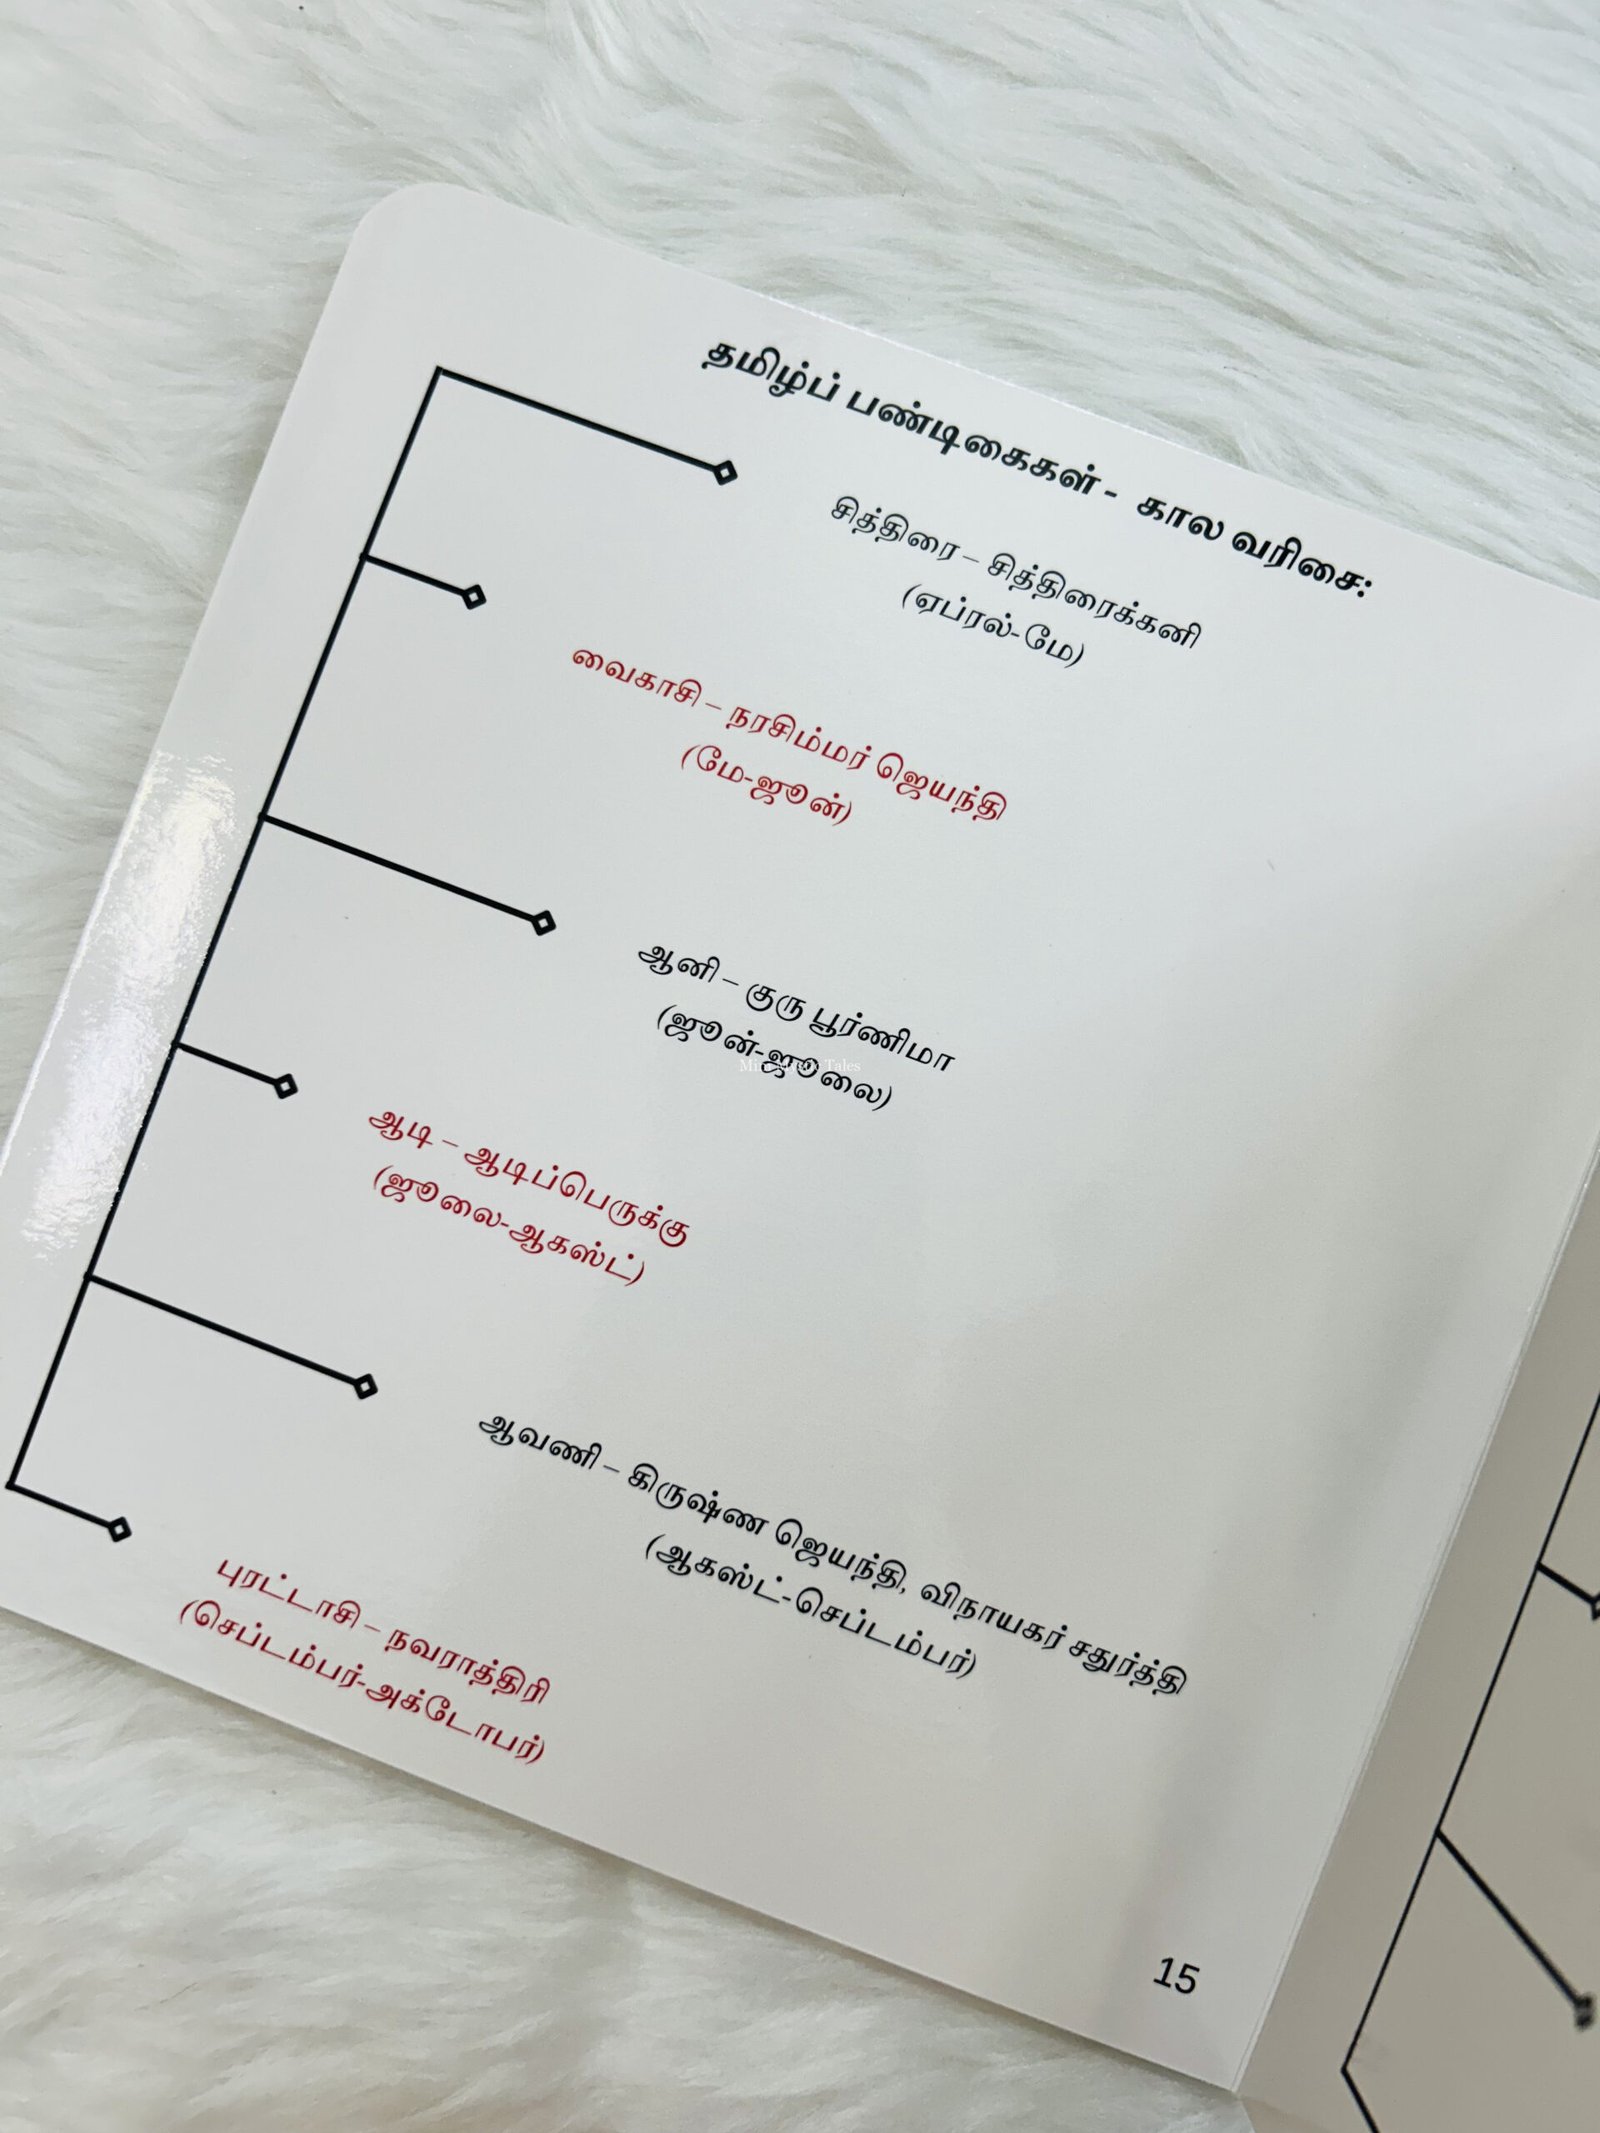 தமிழ்ப் பண்டிகைகள் - கால வரிசை:
சித்திரை – சித்திரைக்கனி
(ஏப்ரல்-மே)
வைகாசி – நரசிம்மர் ஜெயந்தி
(மே-ஜூன்)
ஆனி – குரு பூர்ணிமா
(ஜூன்-ஜூலை)
ஆடி – ஆடிப்பெருக்கு
(ஜூலை-ஆகஸ்ட்)
ஆவணி – கிருஷ்ண ஜெயந்தி, விநாயகர் சதுர்த்தி
(ஆகஸ்ட்-செப்டம்பர்)
புரட்டாசி – நவராத்திரி
(செப்டம்பர்-அக்டோபர்)
15
Tales